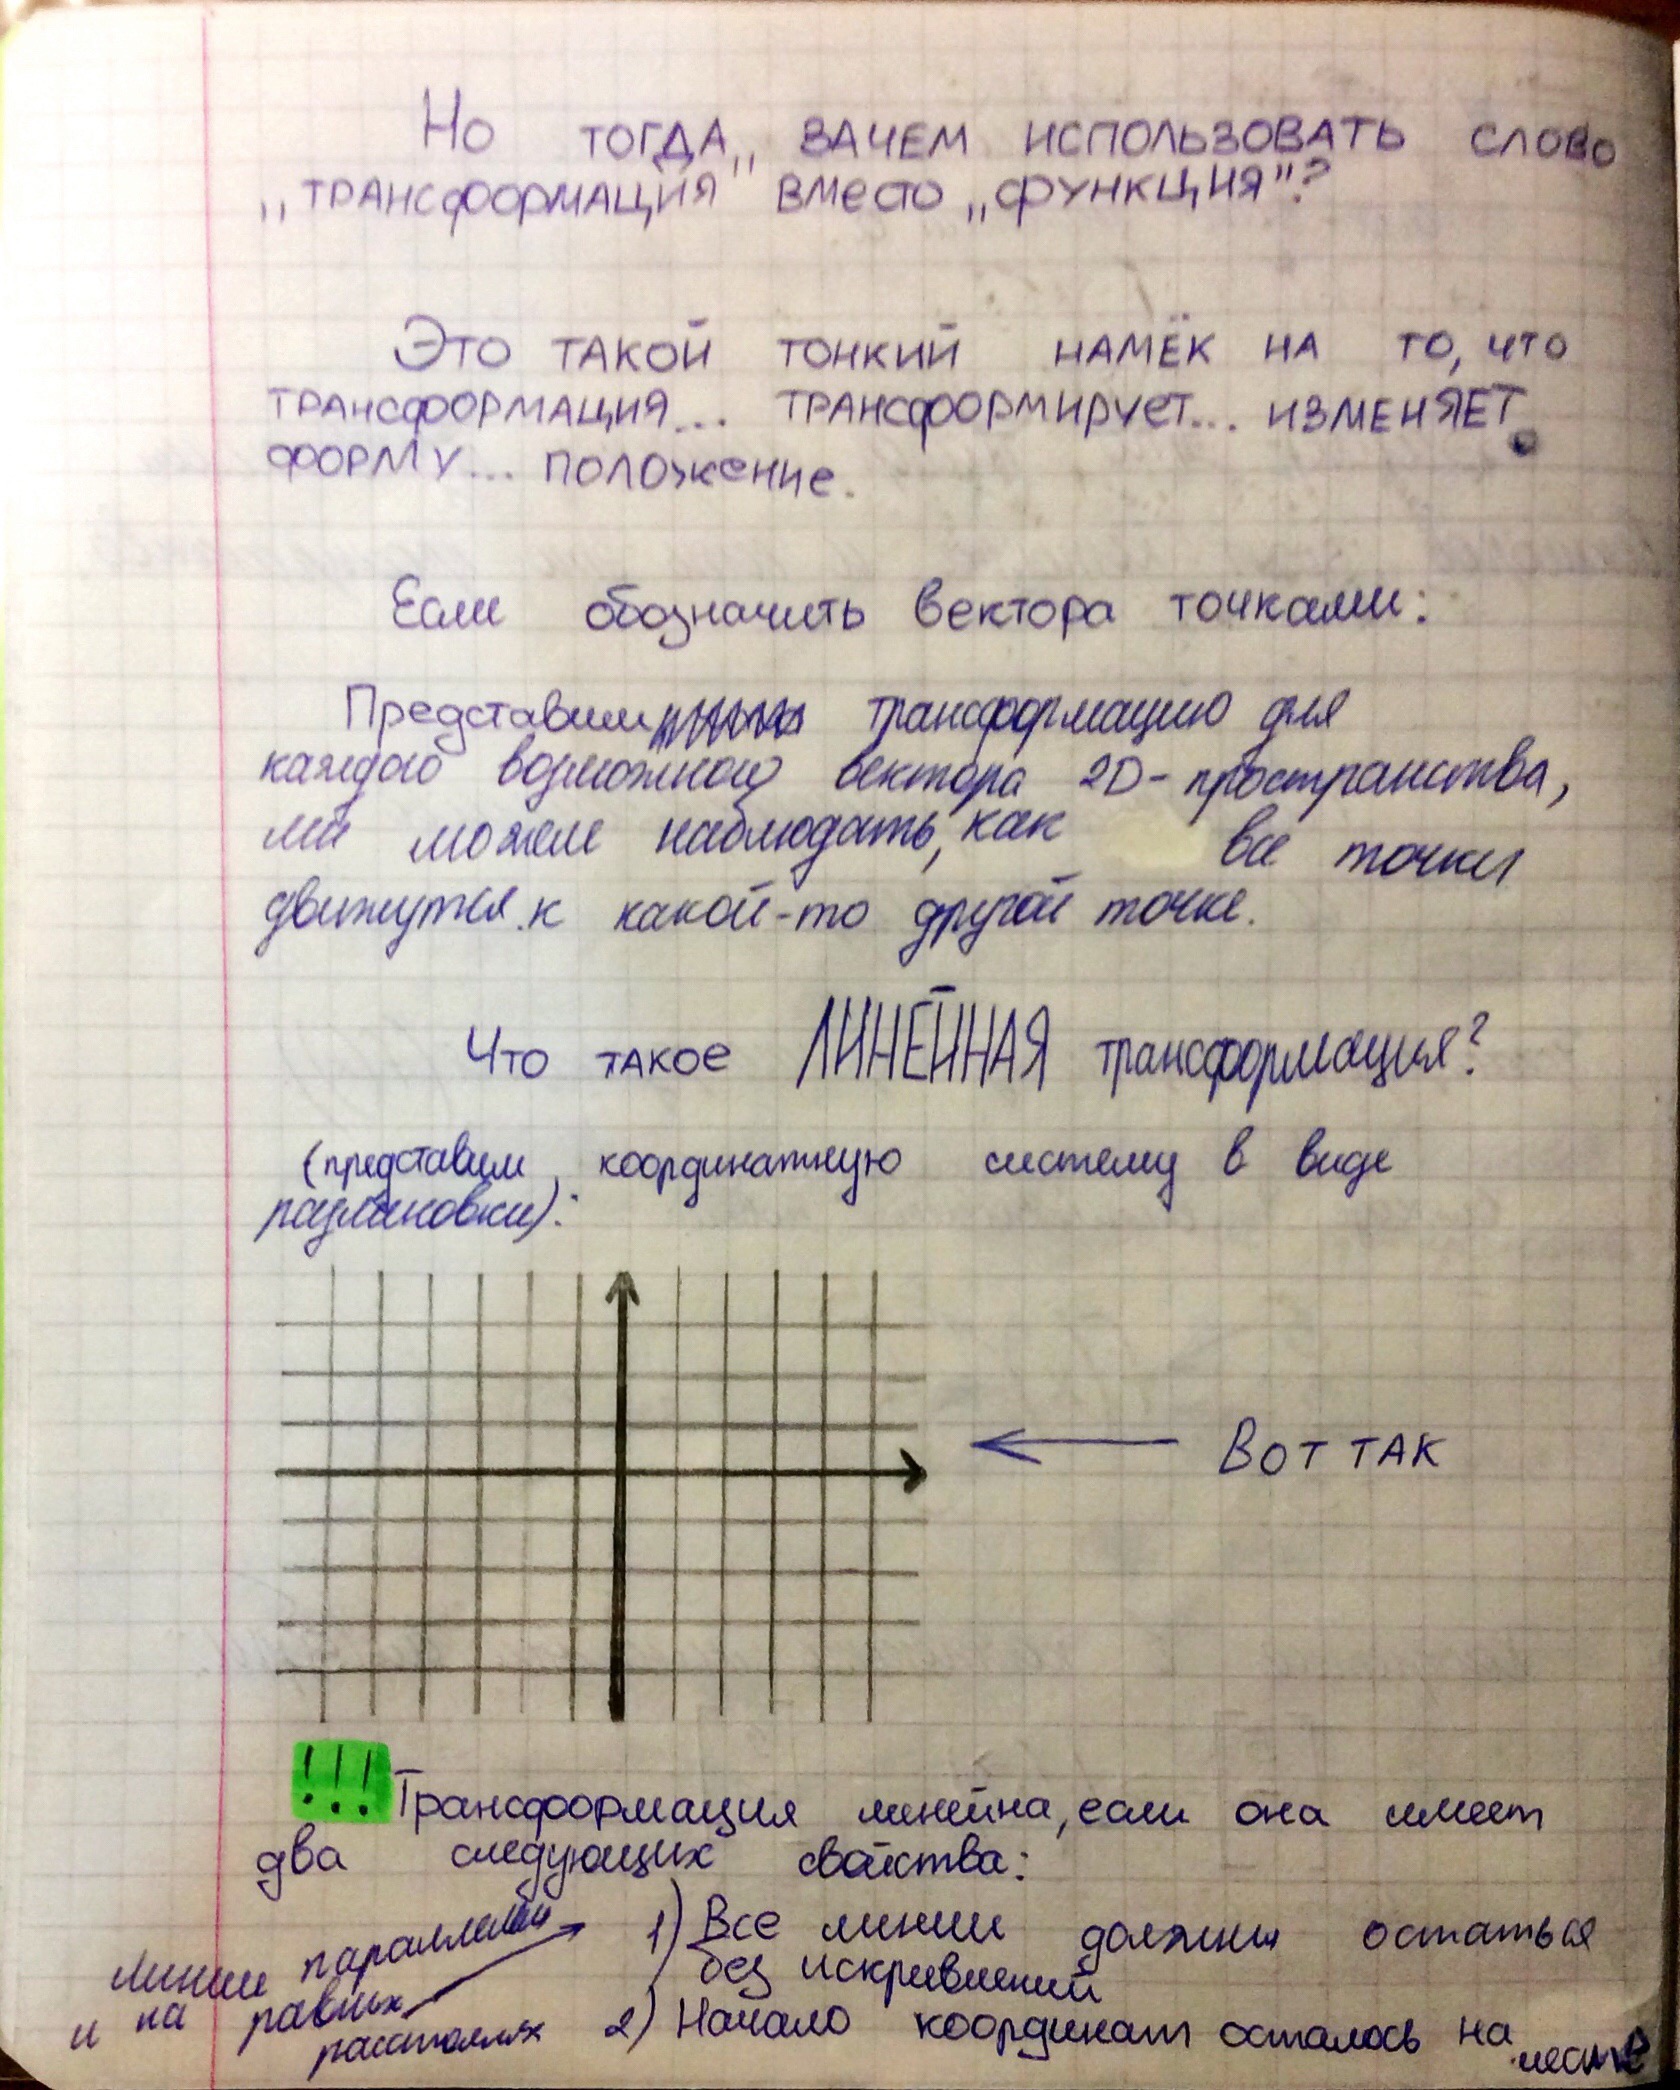 Но тогда,, зачем использовать слово
„трансформация" вместо „функция"?
Это такой тонкий намёк на то, что
трансформация... трансформирует... изменяет
форму... положение.
Если обозначить вектора точками:
Представим трансформацию для
каждого возможного вектора 2D-пространства,
мы можем наблюдать, как все точки
движутся к какой-то другой точке.
Что такое ЛИНЕЙНАЯ трансформация?
(представим, координатную систему в виде
разлиновки):
Вот так
!!! Трансформация линейна, если она имеет
два следующих свойства:
1) Все линии должны остаться
без искривлений
Линии параллельны
и на равных
расстояниях
2) Начало координат осталось на
месте